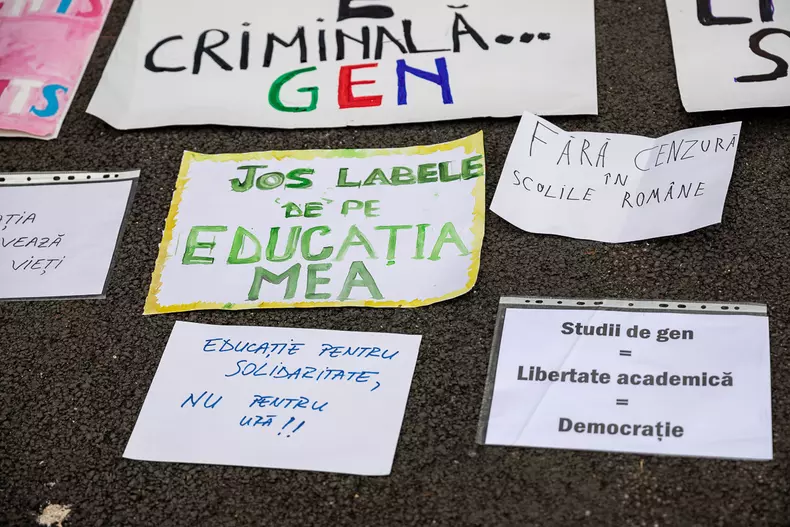 CRIMINALĂ...
GEN
JOS LABELE
"DE" PE
EDUCAȚIA
MEA
FĂRĂ CENZURĂ
ÎN
SCOLILE ROMÂNE
VIEȚI
EDUCAȚIE PENTRU
SOLIDARITATE,
NU PENTRU
URĂ!!
Studii de gen
=
Libertate academică
=
Democrație